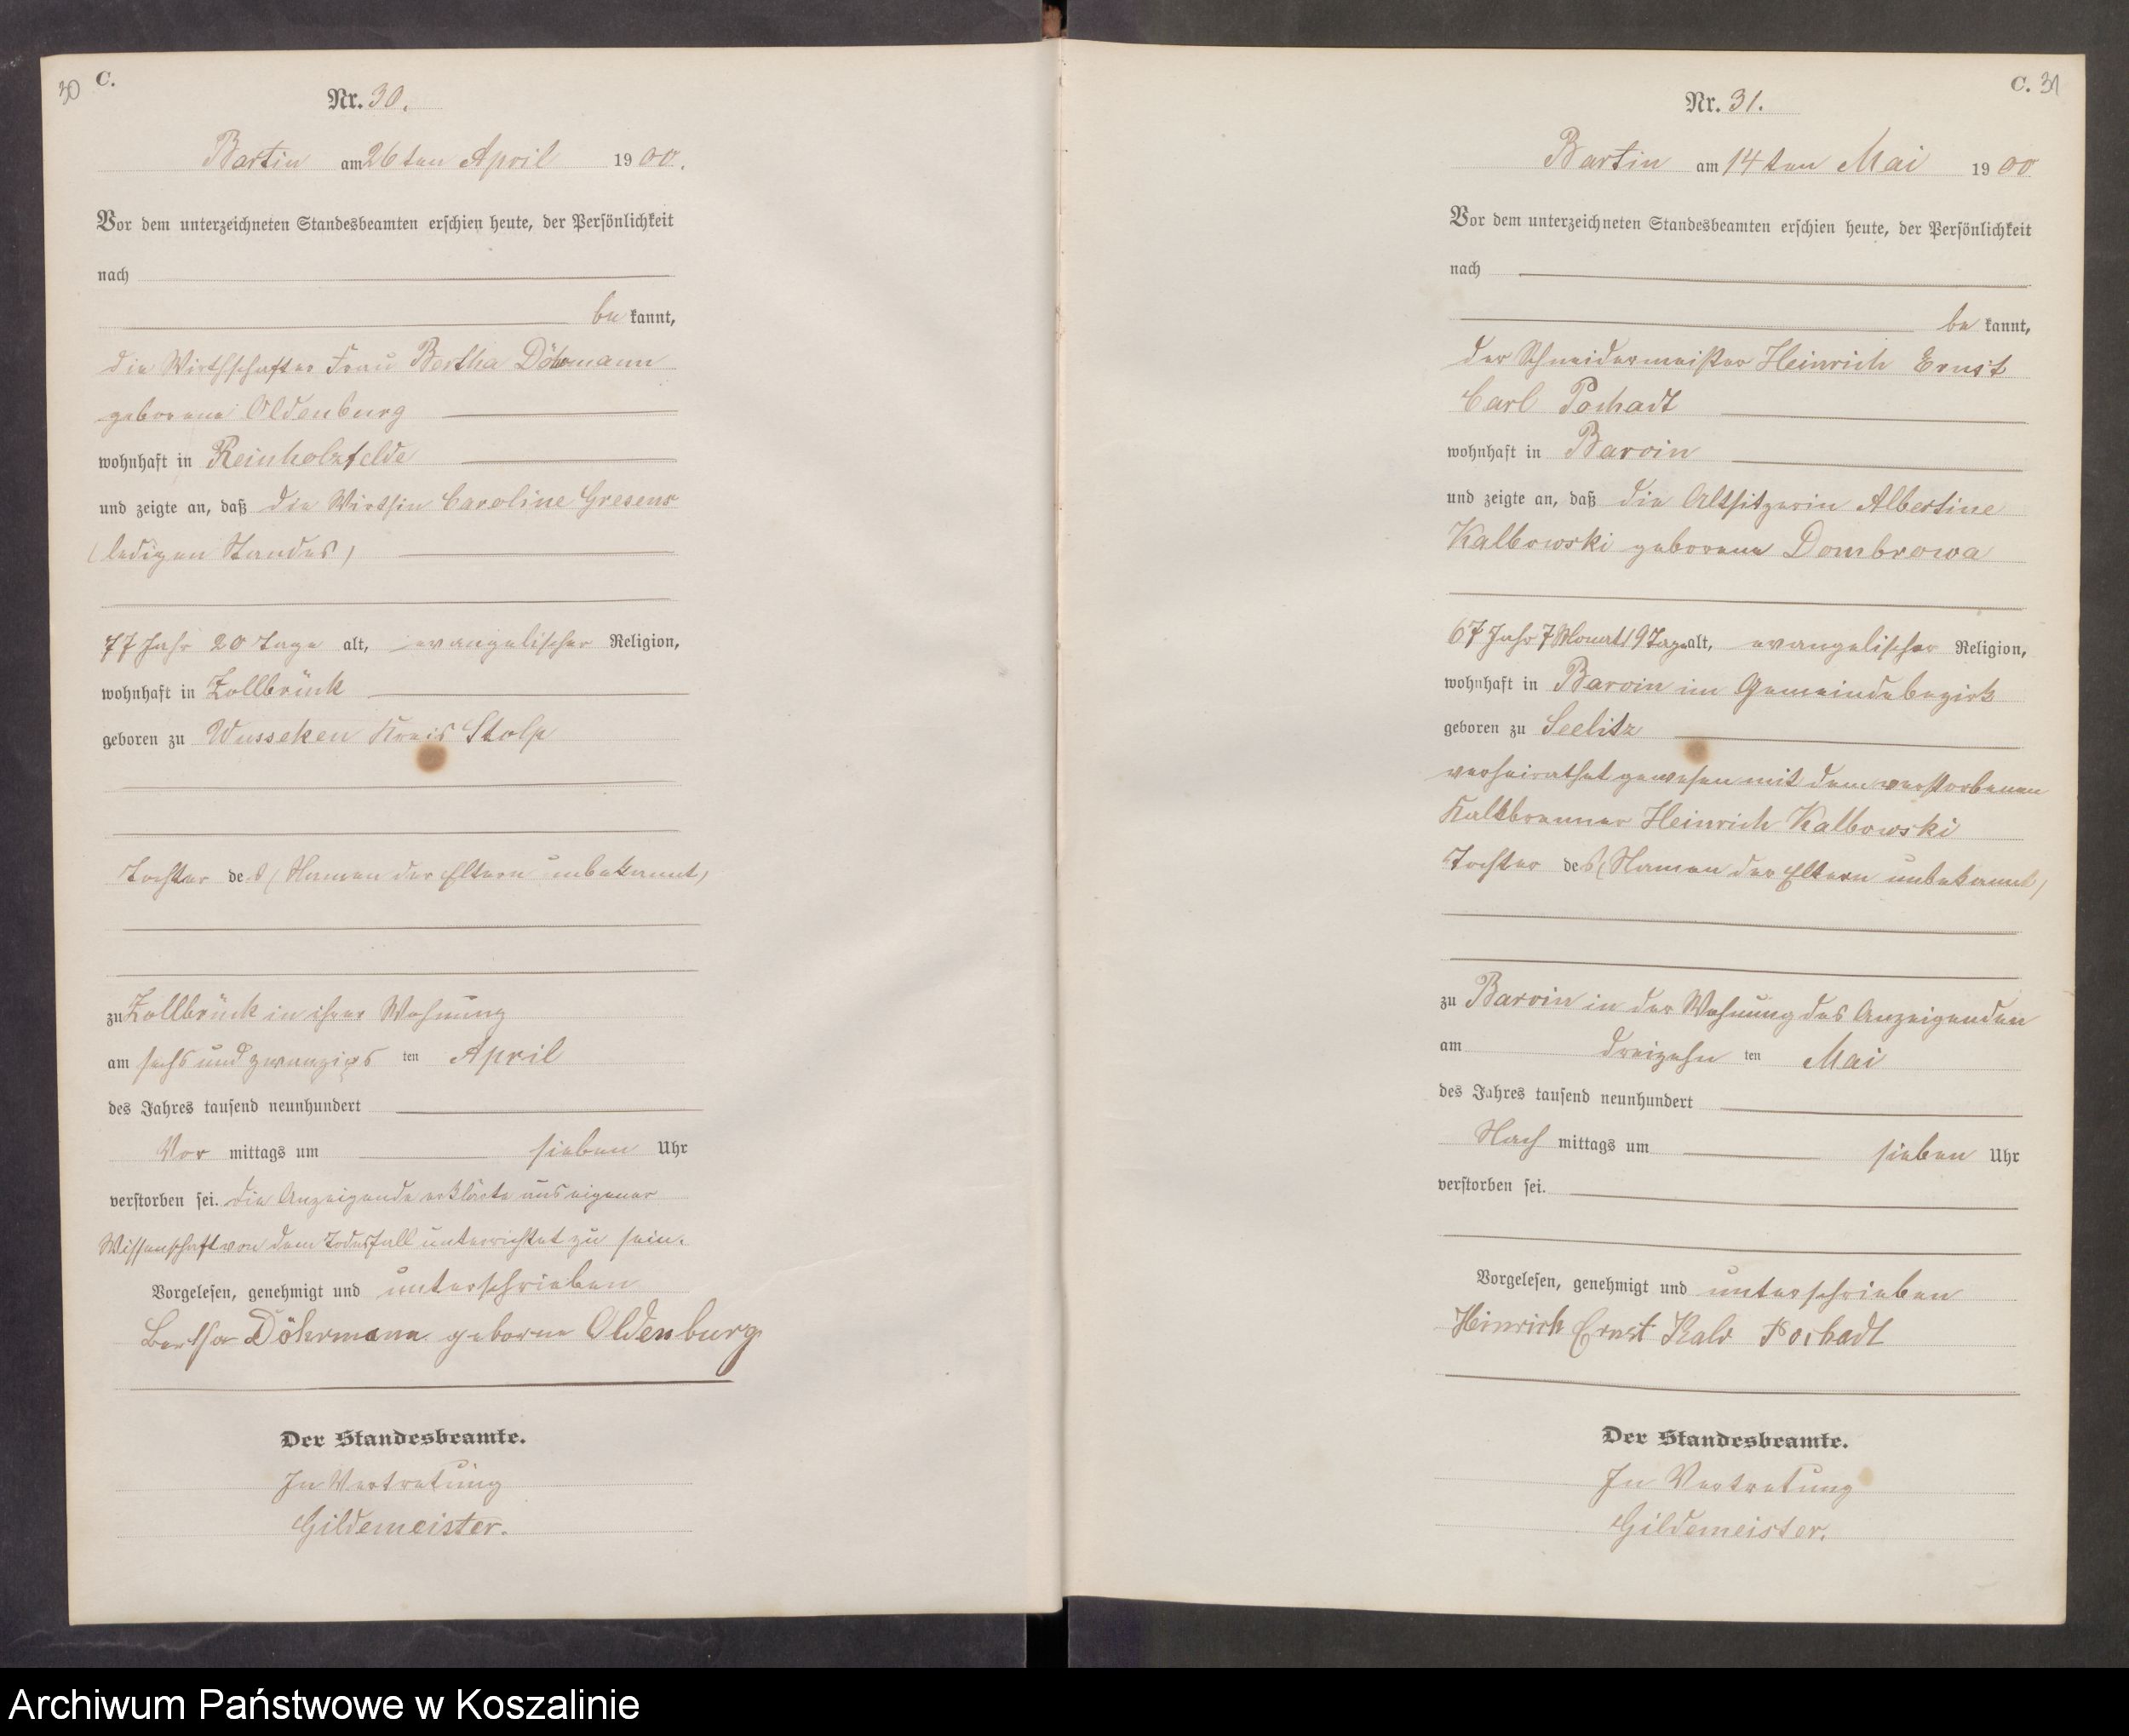 30 C.
Nr. 30.
Bartin am 26ten April 1900.
Vor dem unterzeichneten Standesbeamten erschien heute, der Persönlichkeit
nach
be kannt,
die Wirthschafter Frau Bertha Döhrmann
geborene Oldenburg
wohnhaft in Reinholzfelde
und zeigte an, daß die Wirthin Caroline Gresens
(ledigen Standes)
77 Jahr 20 Tage alt, evangelischer Religion,
wohnhaft in Zollbrück
geboren zu Wusseken Kreis Stolp
Tochter des (Namen der Eltern unbekannt)
zu Zollbrück in ihrer Wohnung
am sechs und zwanzigs ten April
des Jahres tausend neunhundert
Vor mittags um sieben Uhr
verstorben sei. die Anzeigende erklärte aus eigener
Wissenschaft von dem Todesfall unterrichtet zu sein.
Vorgelesen, genehmigt und unterschrieben
Bertha Döhrmann geborne Oldenburg
Der Standesbeamte.
In Vertretung
Gildemeister.
C. 31
Nr. 31.
Bartin am 14ten Mai 1900
Vor dem unterzeichneten Standesbeamten erschien heute, der Persönlichkeit
nach
be kannt,
der Schneidermeister Heinrich Ernst
Carl Pochadt
wohnhaft in Barvin
und zeigte an, daß die Altsitzerin Albertine
Kalbowski geborene Dombrowa
67 Jahr 7 Monat 19 Tage alt, evangelischer Religion,
wohnhaft in Barvin im Gemeindebezirk
geboren zu Seelitz
verheirathet gewesen mit dem verstorbenen
Kalkbrenner Heinrich Kalbowski
Tochter des (Namen der Eltern unbekannt)
zu Barvin in der Wohnung des Anzeigenden
am dreizehn ten Mai
des Jahres tausend neunhundert
Nach mittags um sieben Uhr
verstorben sei.
Vorgelesen, genehmigt und unterschrieben
Heinrich Ernst Karl Pochadt
Der Standesbeamte.
In Vertretung
Gildemeister.
Archiwum Państwowe w Koszalinie